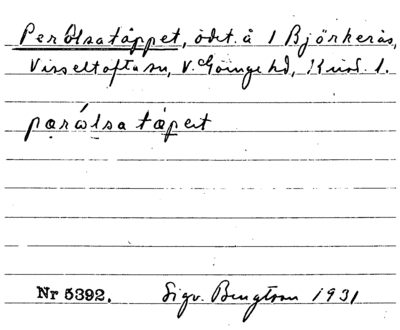 Per Olsatäppet, ödet. å 1 Björkerås,
Visseltofta sn, V. Göinge hd, Krist. l.
parólsa täpet
Nr 5392. Sigv. Bengtson 1931